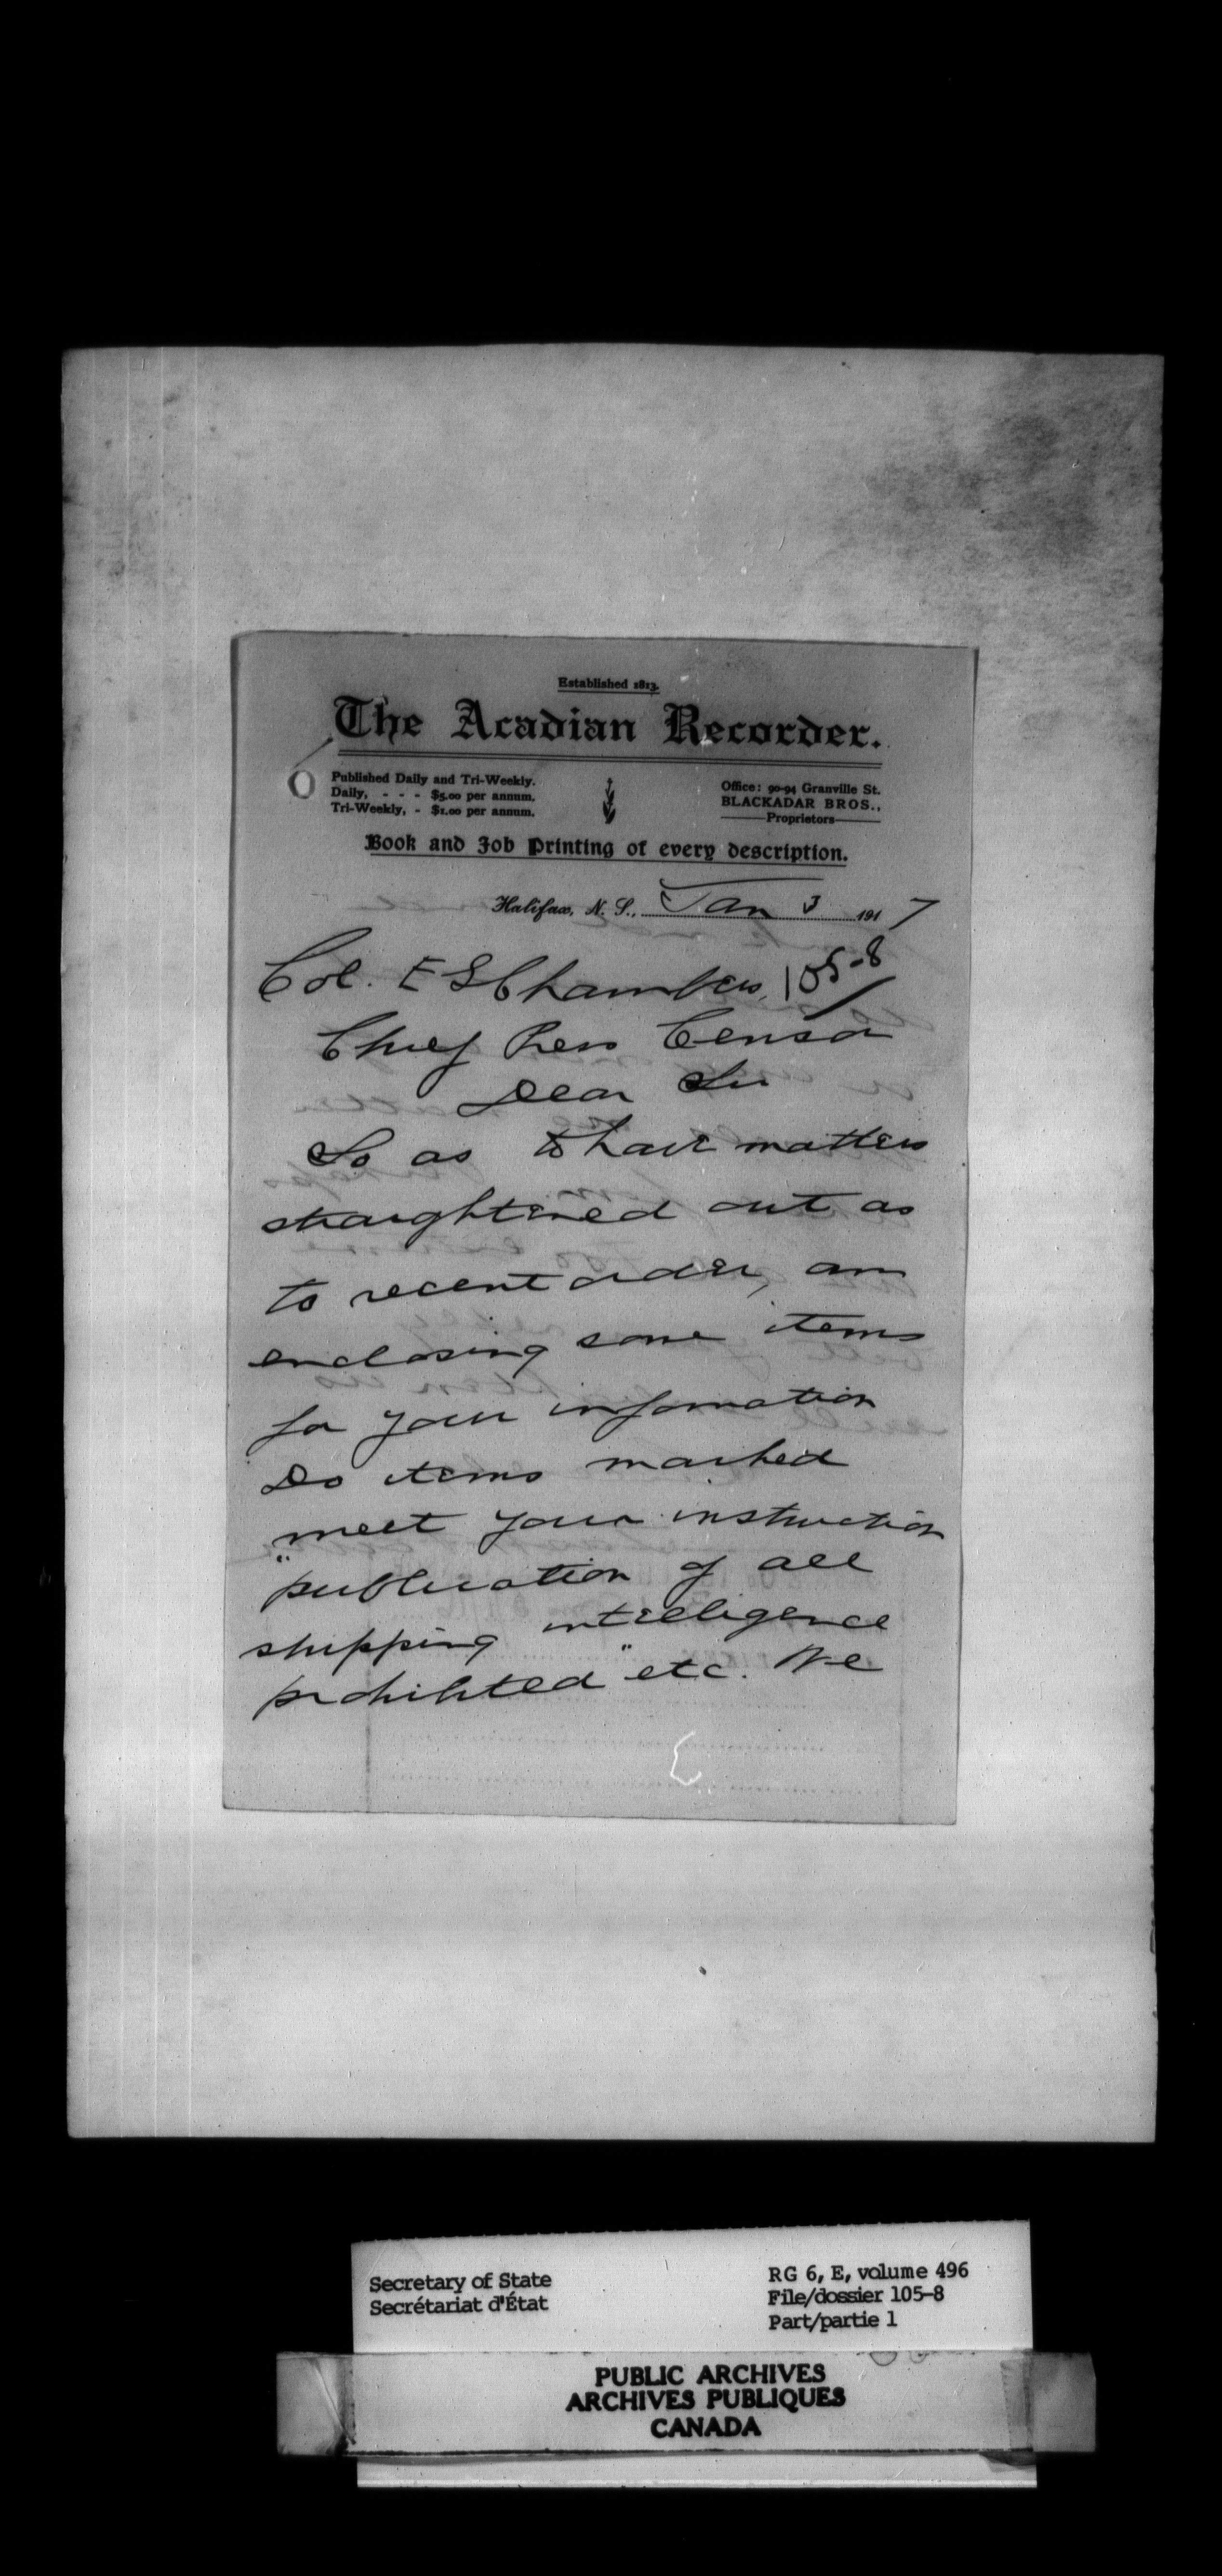 Established 1813.
The Acadian Recorder.
Published Daily and Tri-Weekly.
Daily, - - - $5.00 per annum.
Tri-Weekly, - $1.00 per annum.
Office: 90-94 Granville St.
BLACKADAR BROS.,
Proprietors
Book and Job Printing of every description.
Halifax, N. S., Jan 3 1917
Col. E S Chambers, 105-8
Chief Press Censor
Dear Sir
So as to have matters
straightened out as
to recent order, am
enclosing some items
for your information
Do items marked
meet your instruction
"publication of all
shipping intelligence
prohibited" etc. We
Secretary of State
Secrétariat d'État
RG 6, E, volume 496
File/dossier 105-8
Part/partie 1
PUBLIC ARCHIVES
ARCHIVES PUBLIQUES
CANADA